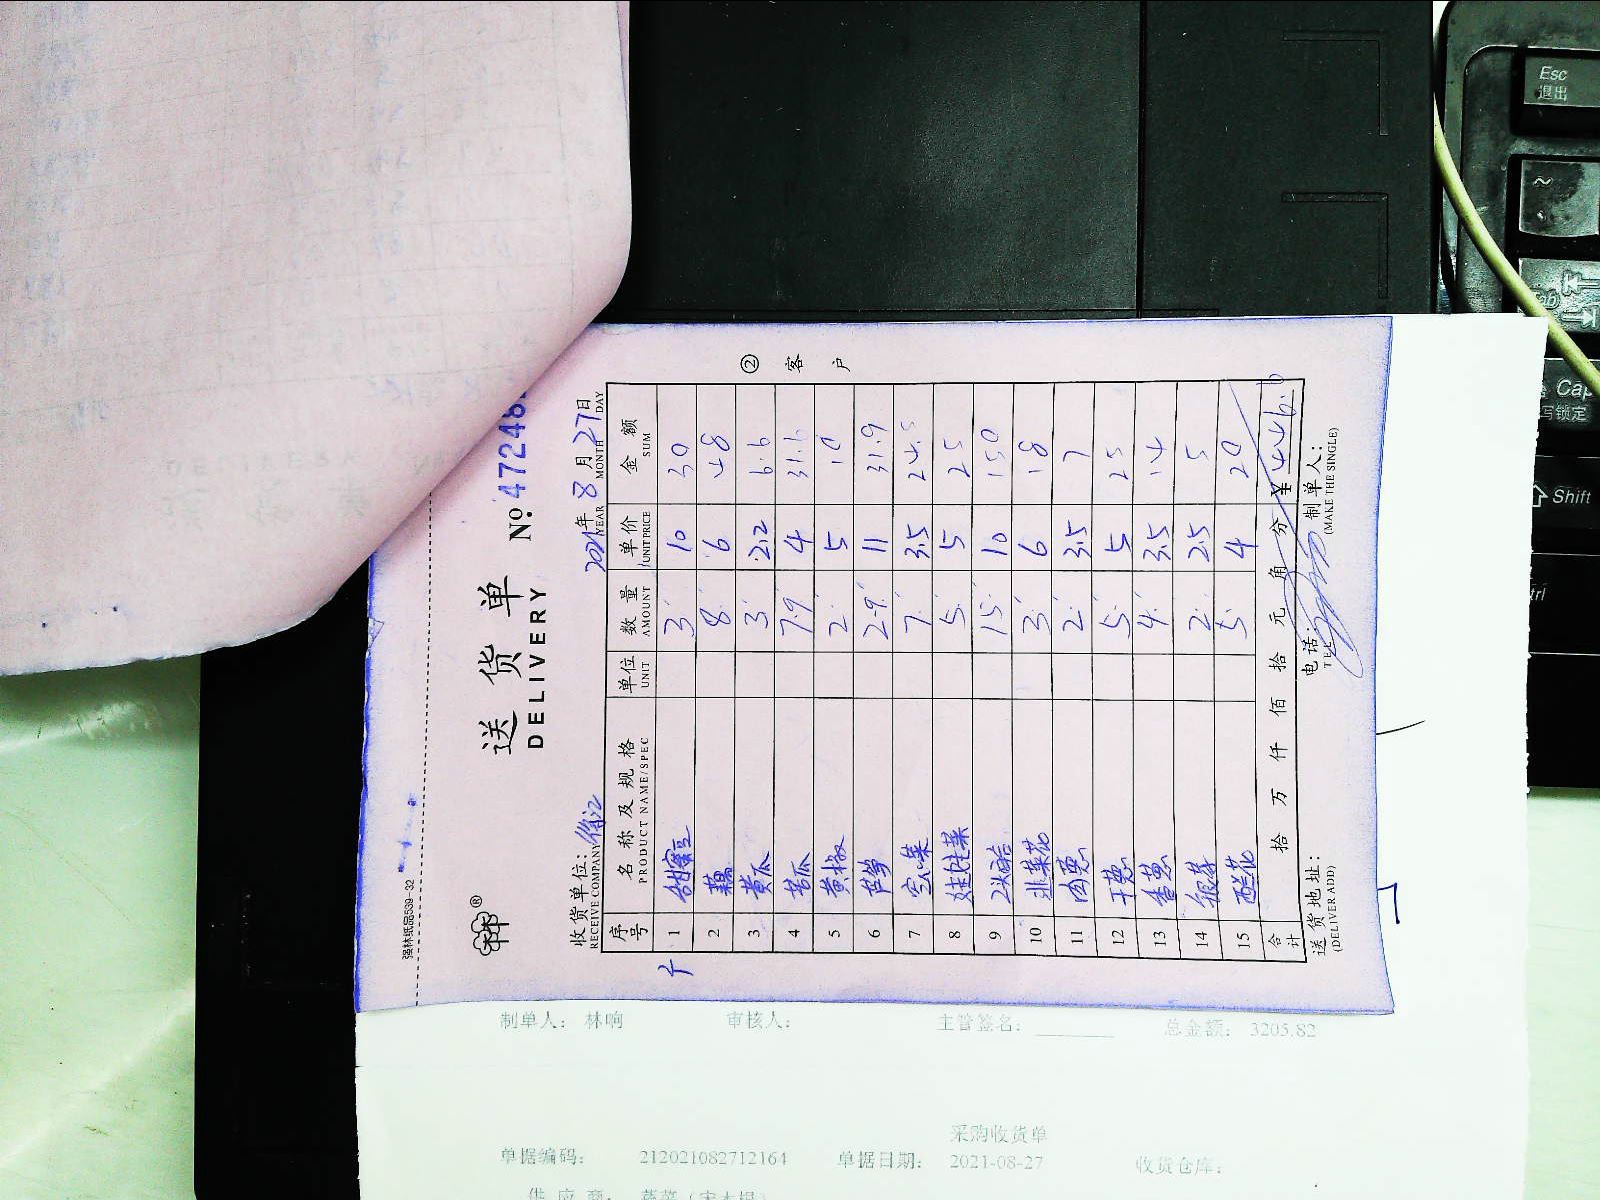 强林纸品539-32
送货单
DELIVERY
No. 47248
收货单位:
RECEIVE COMPANY
2021年 8月 27日
YEAR MONTH DAY
② 客户
序号 名称及规格 单位 数量 单价 金额
PRODUCT NAME/SPEC UNIT AMOUNT UNIT PRICE SUM
1 甜蜜豆 3 10 30
2 藕 8 6 48
3 黄瓜 3 2.2 6.6
4 苦瓜 7.9 4 31.6
5 黄椒 2 5 10
6 芦笋 2.9 11 31.9
7 空心菜 7 3.5 24.5
8 娃娃菜 5 5 25
9 15 10 150
10 韭菜花 3 6 18
11 肉葱 2 3.5 7
12 干葱 5 5 25
13 香葱 4 3.5 14
14 银芽 2 2.5 5
15 西兰花 5 4 20
合计 拾 万 仟 佰 拾 元 角 分 ¥ 446.6
送货地址: 电话: 制单人:
(DELIVER ADD) TEL (MAKE THE SINGLE)
制单人: 林响 审核人: 主管签名: 总金额: 3205.82
采购收货单
单据编码: 212021082712164 单据日期: 2021-08-27 收货仓库:
供应商:
Esc
退出
~
Tab
Cap
写锁定
Shift
trl